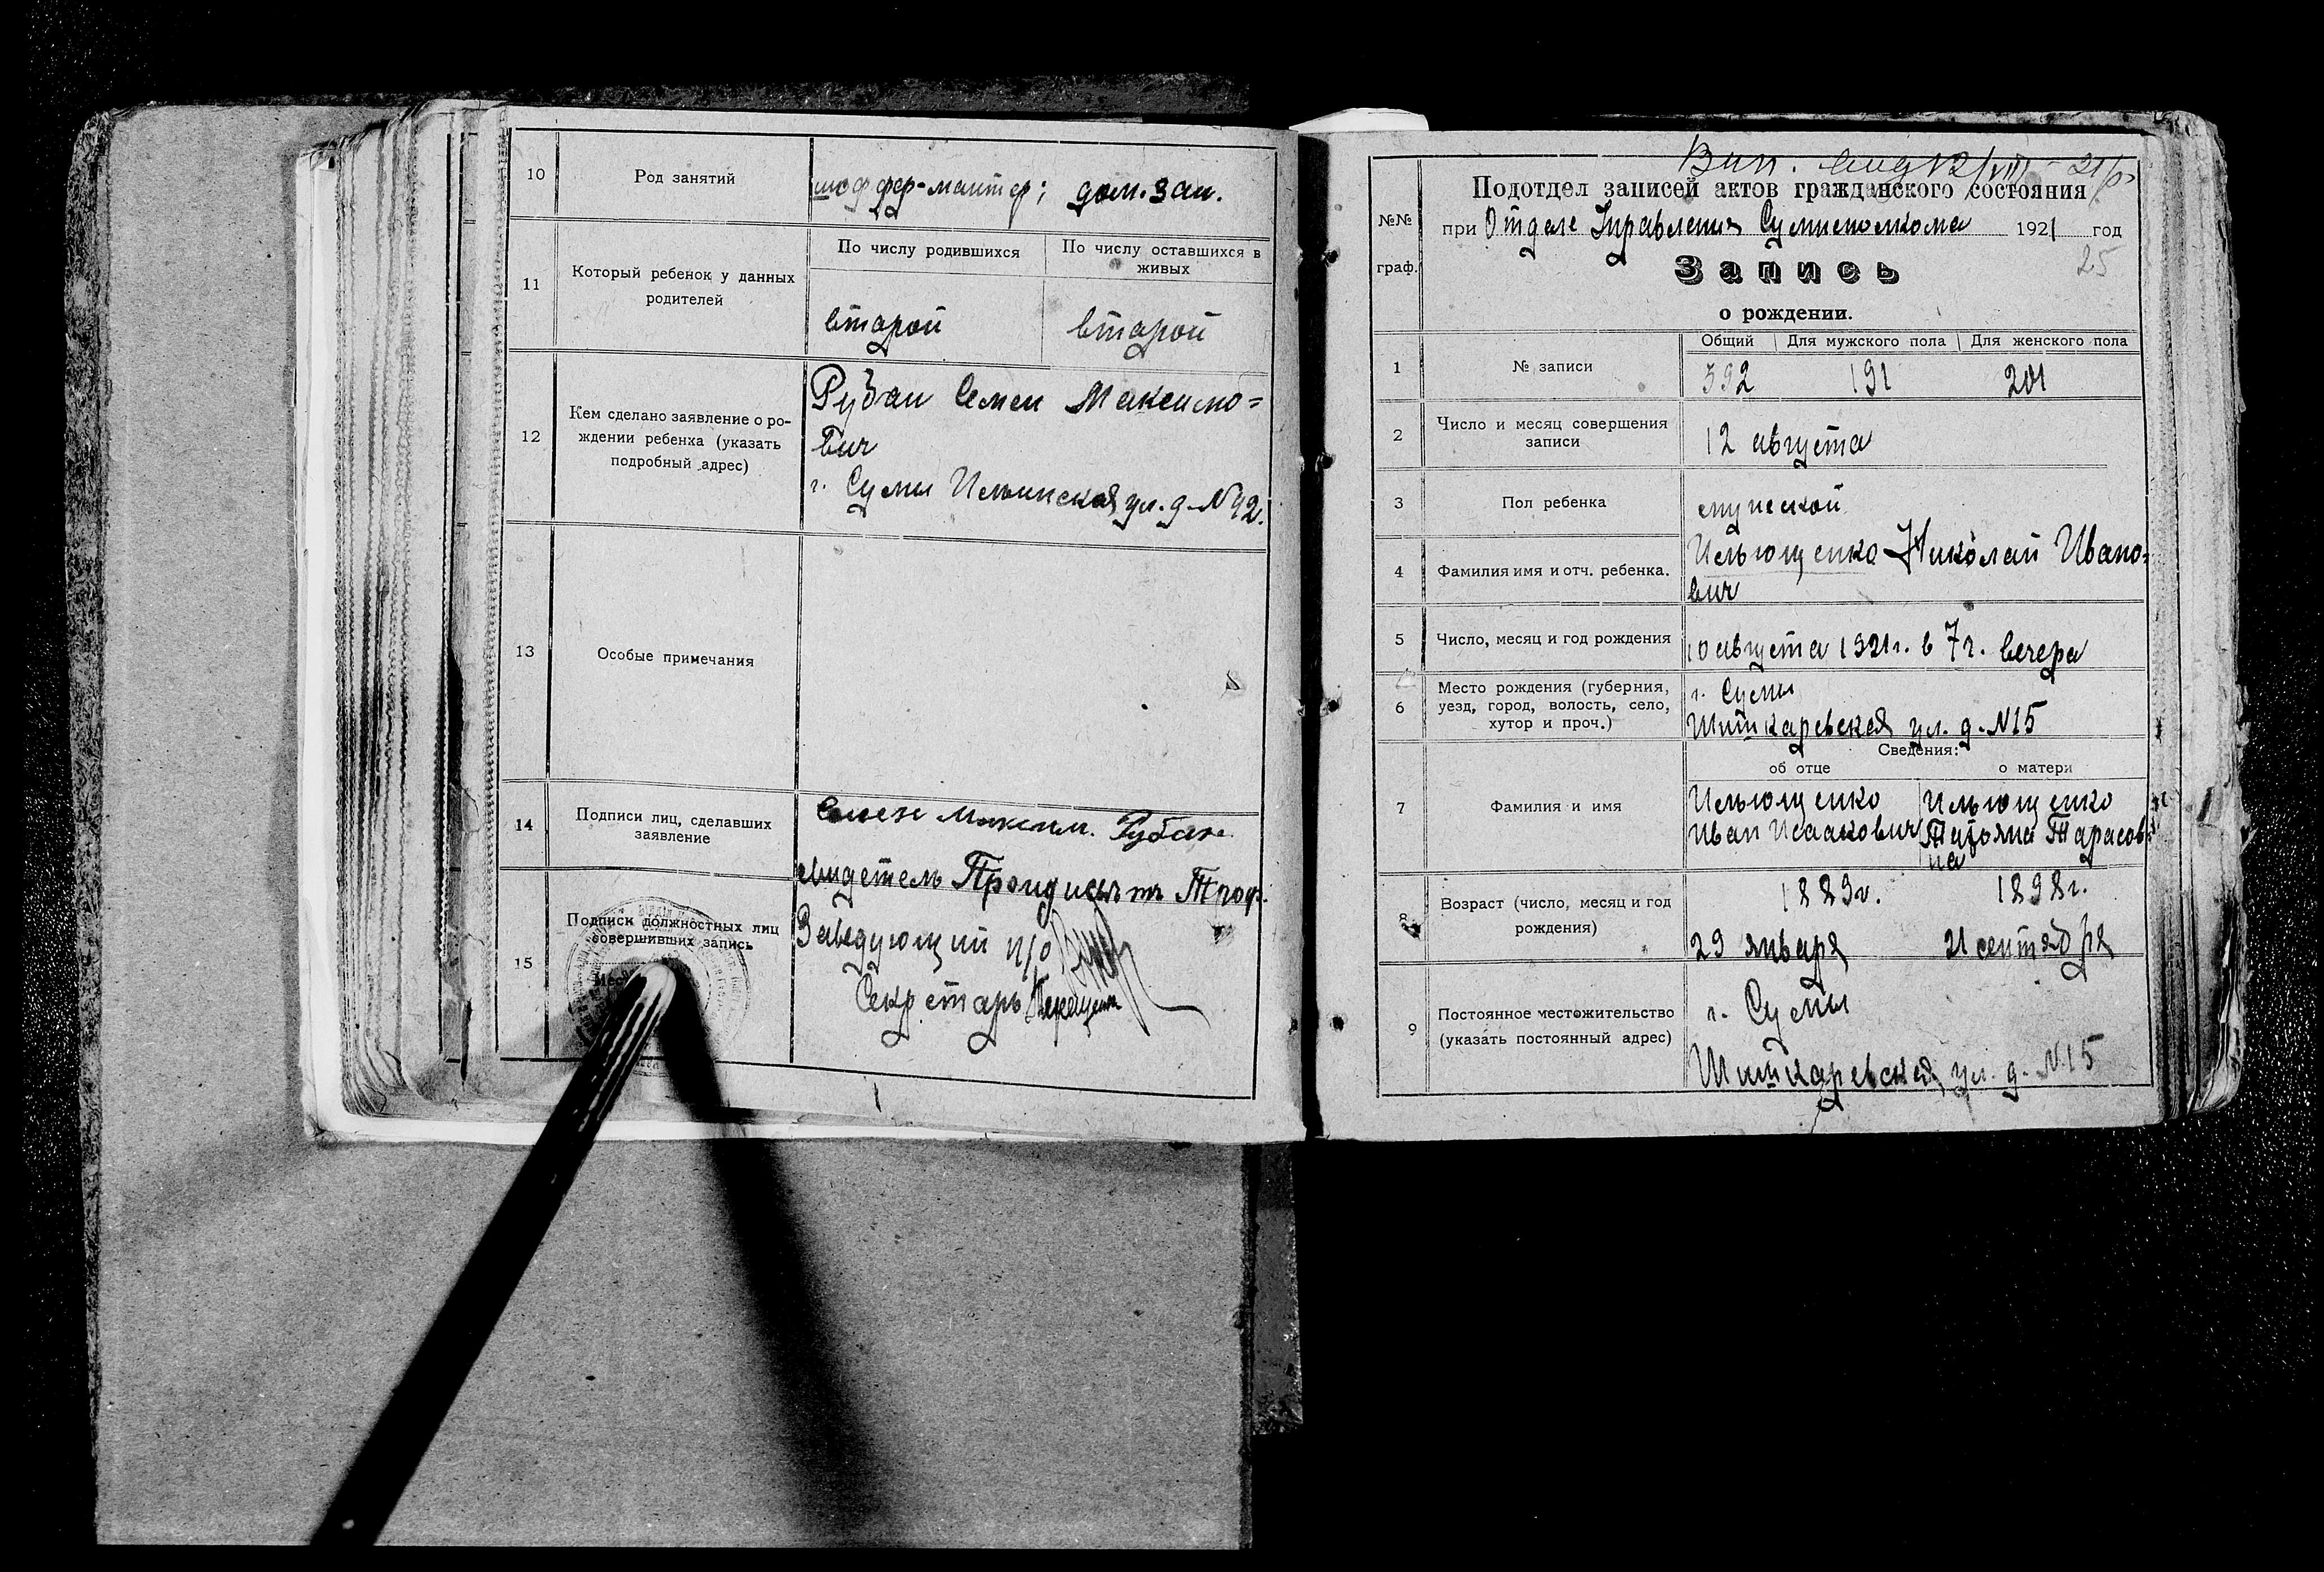 10
Род занятий
шоффер-монтер; дом. зан.
11
Который ребенок у данных
родителей
По числу родившихся
По числу оставшихся в
живых
второй
второй
12
Кем сделано заявление о ро-
ждении ребенка (указать
подробный адрес)
Рубан Семен Максимо=
вич
г. Сумы Ильинская ул. д. N 92.
13
Особые примечания
14
Подписи лиц, сделавших
заявление
Семен Максим. Рубан
свидетель
15
Подписи должностных лиц
совершивших запись
Заведующий п/о
Секретарь
Вип.
12/VIII - 21 р
№№
граф.
Подотдел записей актов гражданского состояния
при Отделе Управления Сумисполкома 1921 год
25
Запись
о рождении.
1
№ записи
Общий
Для мужского пола
Для женского пола
392
191
201
2
Число и месяц совершения
записи
12 августа
3
Пол ребенка
мужской
4
Фамилия имя и отч. ребенка.
Ильющенко Николай Ивано=
вич
5
Число, месяц и год рождения
10 августа 1921 г. в 7 ч. вечера
6
Место рождения (губерния,
уезд, город, волость, село,
хутор и проч.)
г. Сумы
Шишкаревская ул. д. N 15
Сведения:
об отце
о матери
7
Фамилия и имя
Ильющенко
Иван Исаакович
Ильющенко
Татьяна Тарасов
на
8
Возраст (число, месяц и год
рождения)
1889 г.
29 января
1898 г.
21 сентября
9
Постоянное местожительство
(указать постоянный адрес)
г. Сумы
Шишкаревская ул. д. N 15